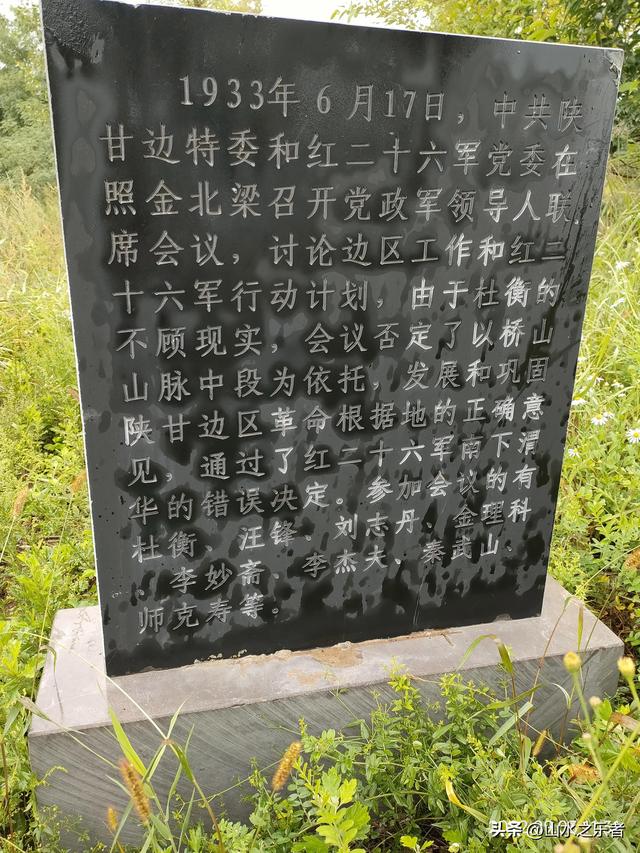 1933年6月17日，中共陕
甘边特委和红二十六军党委在
照金北梁召开党政军领导人联
席会议，讨论边区工作和红二
十六军行动计划，由于杜衡的
不顾现实，会议否定了以桥山
山脉中段为依托，发展和巩固
陕甘边区革命根据地的正确意
见，通过了红二十六军南下渭
华的错误决定。参加会议的有
杜衡、汪锋、刘志丹、金理科
、李妙斋、李杰夫、秦武山、
师克寿等。
头条 @山水之乐者